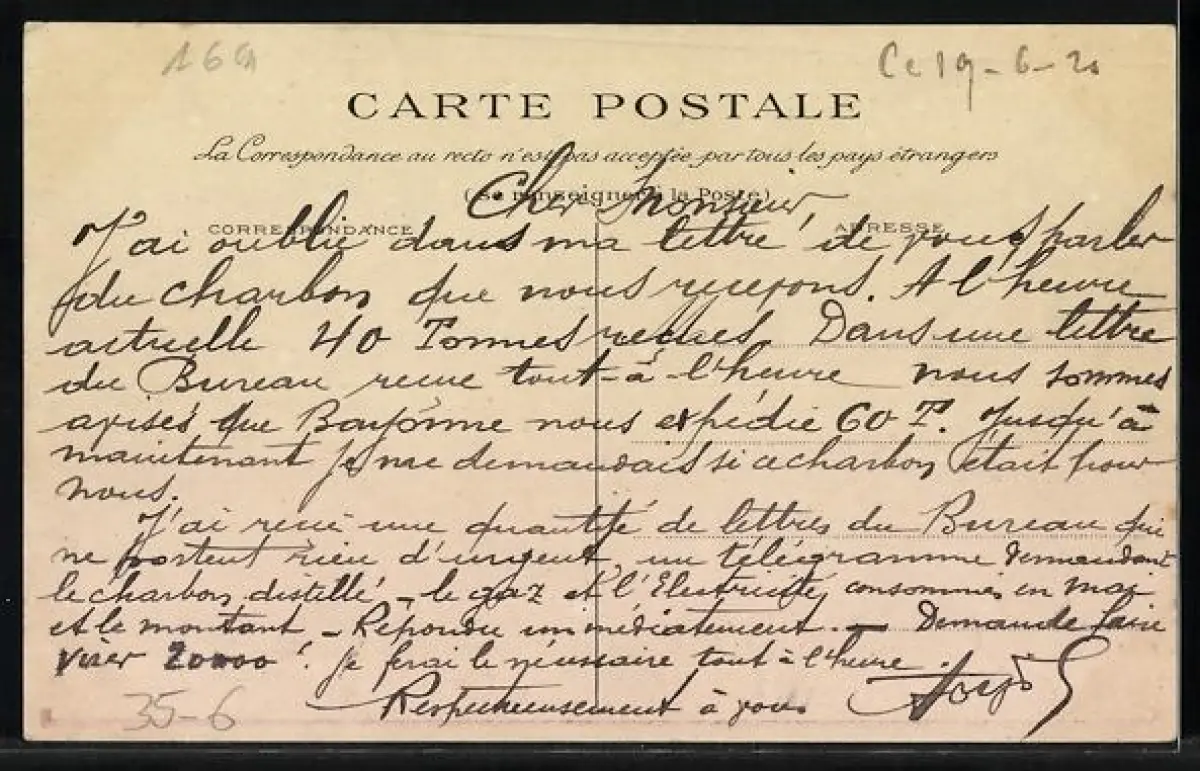 169
Ce 19-6-20
CARTE POSTALE
La Correspondance au recto n'est pas acceptée par tous les pays étrangers
(Se renseigner à la Poste)
Cher Monsieur
CORRESPONDANCE
ADRESSE
J'ai oublié dans ma lettre de vous parler
du charbon que nous recevons. A l'heure
actuelle 40 Tonnes reçues. Dans une lettre
du Bureau reçue tout-à-l'heure nous sommes
avisés que Bayonne nous expédie 60 T. Jusqu'à
maintenant je me demandais si ce charbon était pour
nous.
J'ai reçu une quantité de lettres du Bureau qui
ne portent rien d'urgent, un télégramme demandant
le charbon distillé, - le gaz et l'Electricité, consommés en mai
et le montant, - Répondu immédiatement. - Demande faire
virer 20000 f. Je ferai le nécessaire tout à l'heure.
Respectueusement à vous
35-6